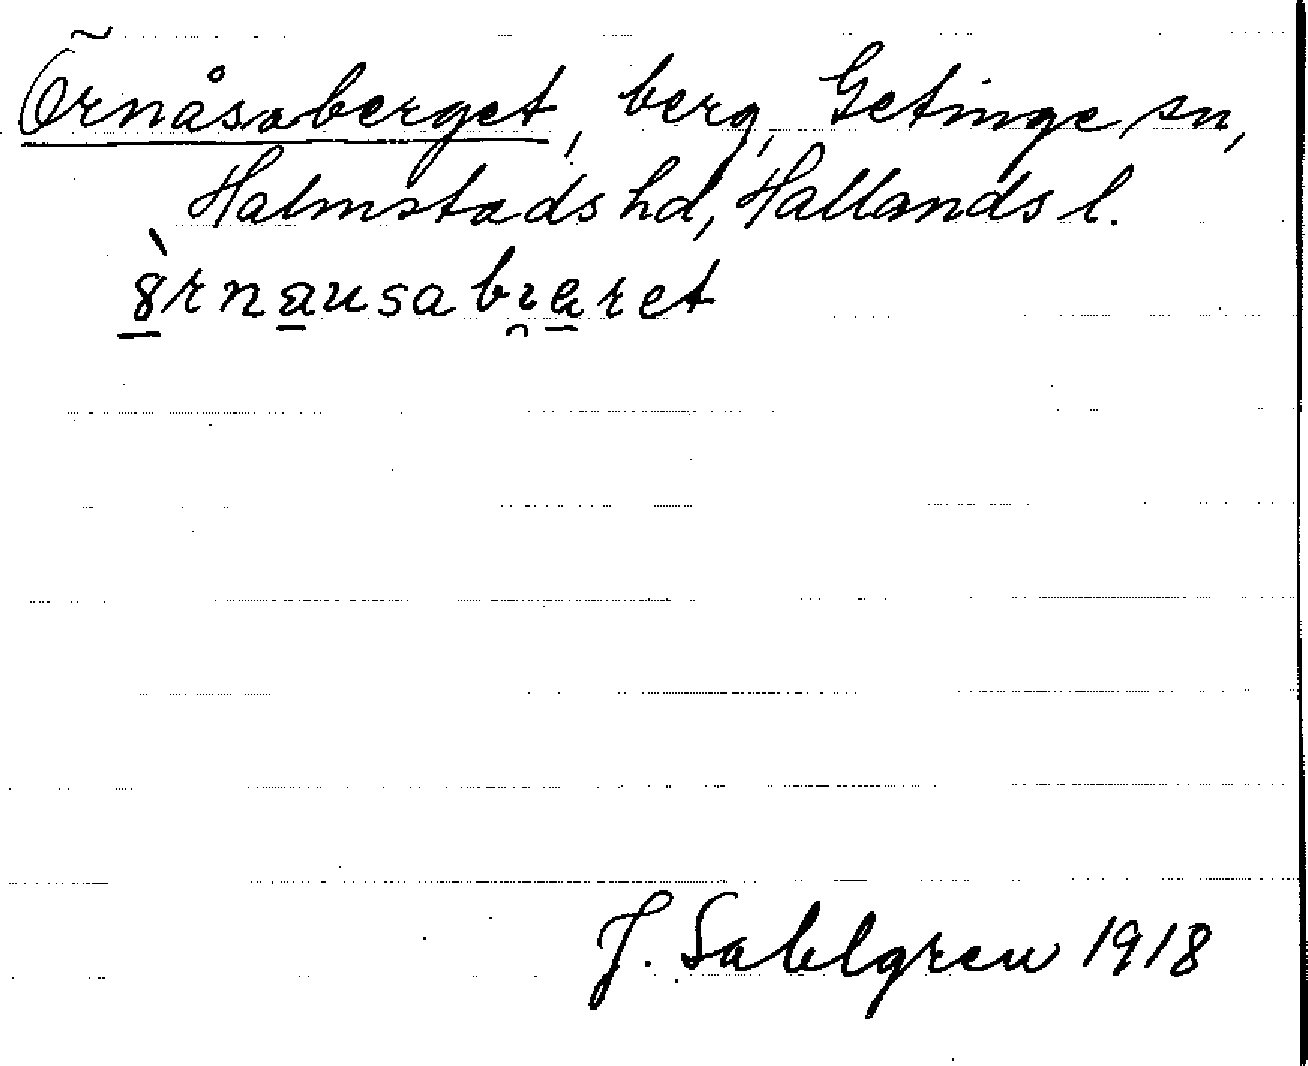 Örnåsaberget, berg, Getinge sn,
Halmstads hd, Hallands l.
J. Sahlgren 1918